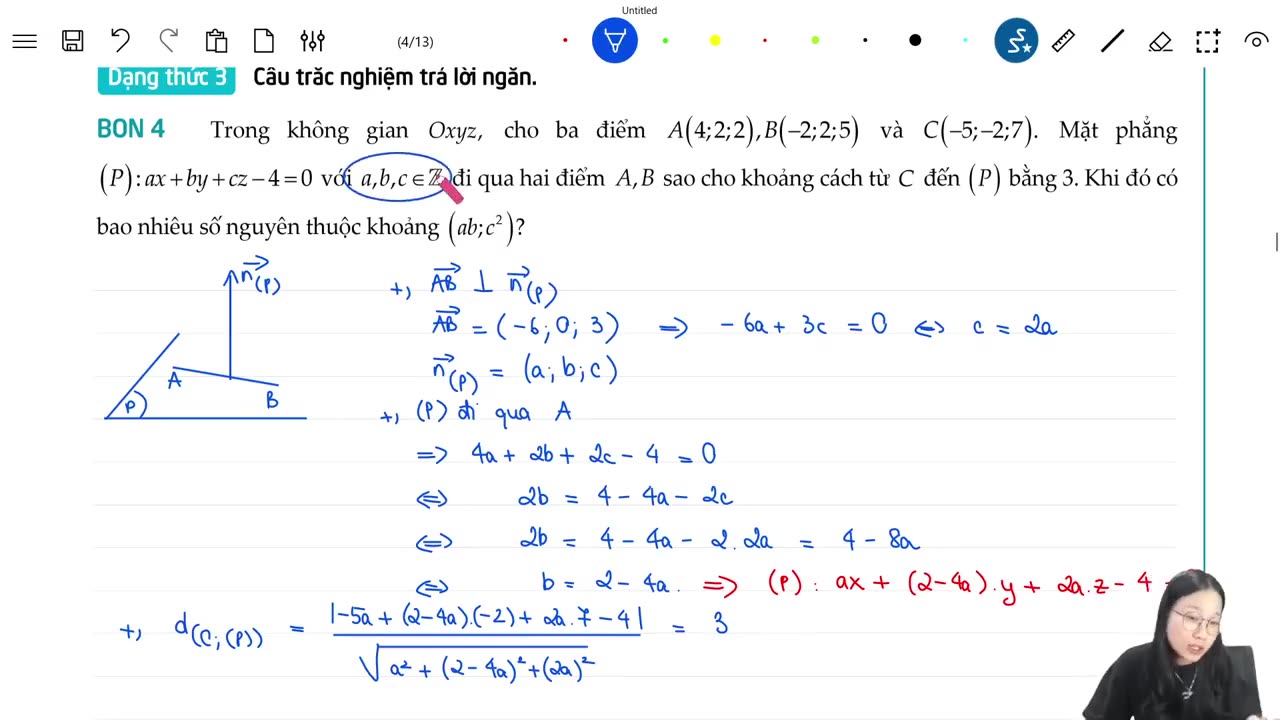 Untitled
(4/13)
Dạng thức 3 Câu trắc nghiệm trả lời ngắn.
BON 4 Trong không gian Oxyz, cho ba điểm A(4;2;2),B(–2;2;5) và C(–5;–2;7). Mặt phẳng
(P):ax+by+cz–4=0 với a,b,c∈ℤ đi qua hai điểm A,B sao cho khoảng cách từ C đến (P) bằng 3. Khi đó có
bao nhiêu số nguyên thuộc khoảng (ab;c²)?
n⃗(P)
A B
P)
+, AB⃗ ⊥ n⃗(P)
AB⃗ = (-6; 0; 3) => -6a + 3c = 0 <=> c = 2a
n⃗(P) = (a; b; c)
+, (P) đi qua A
=> 4a + 2b + 2c - 4 = 0
<=> 2b = 4 - 4a - 2c
<=> 2b = 4 - 4a - 2.2a = 4 - 8a
<=> b = 2 - 4a. => (P): ax + (2-4a).y + 2a.z - 4
+, d(C;(P)) = |-5a + (2-4a).(-2) + 2a.7 - 4| / √(a² + (2-4a)² + (2a)²) = 3